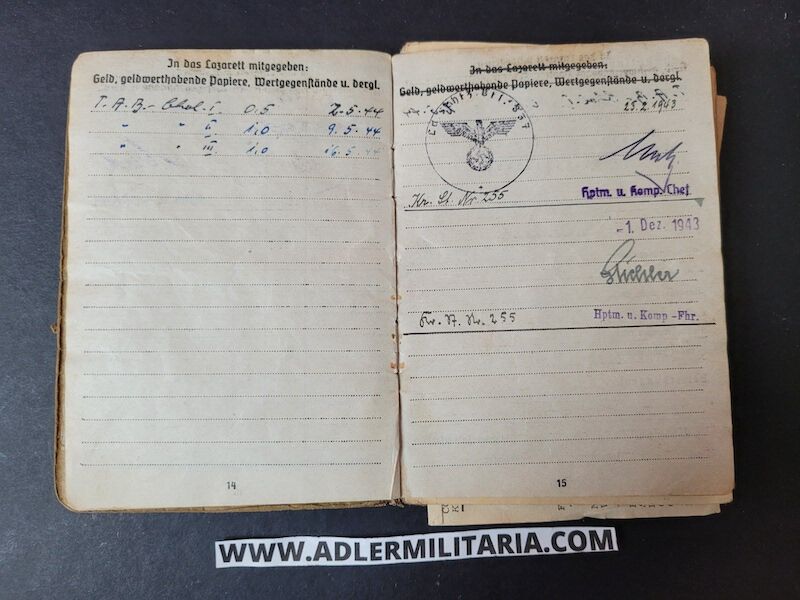 In das Lazarett mitgegeben:
Geld, geldwerthabende Papiere, Wertgegenstände u. dergl.
T. A. B.- Chol. I 0,5 2.5.44
" " II 1,0 9.5.44
" " III 1,0 16.5.44
14
In das Lazarett mitgegeben:
Geld, geldwerthabende Papiere, Wertgegenstände u. dergl.
25.2.1943
Kr. St. Nr. 255
Hptm. u. Komp. Chef
-1. Dez. 1943
Kr. St. Nr. 255
Hptm. u. Komp -Fhr.
15
WWW.ADLERMILITARIA.COM